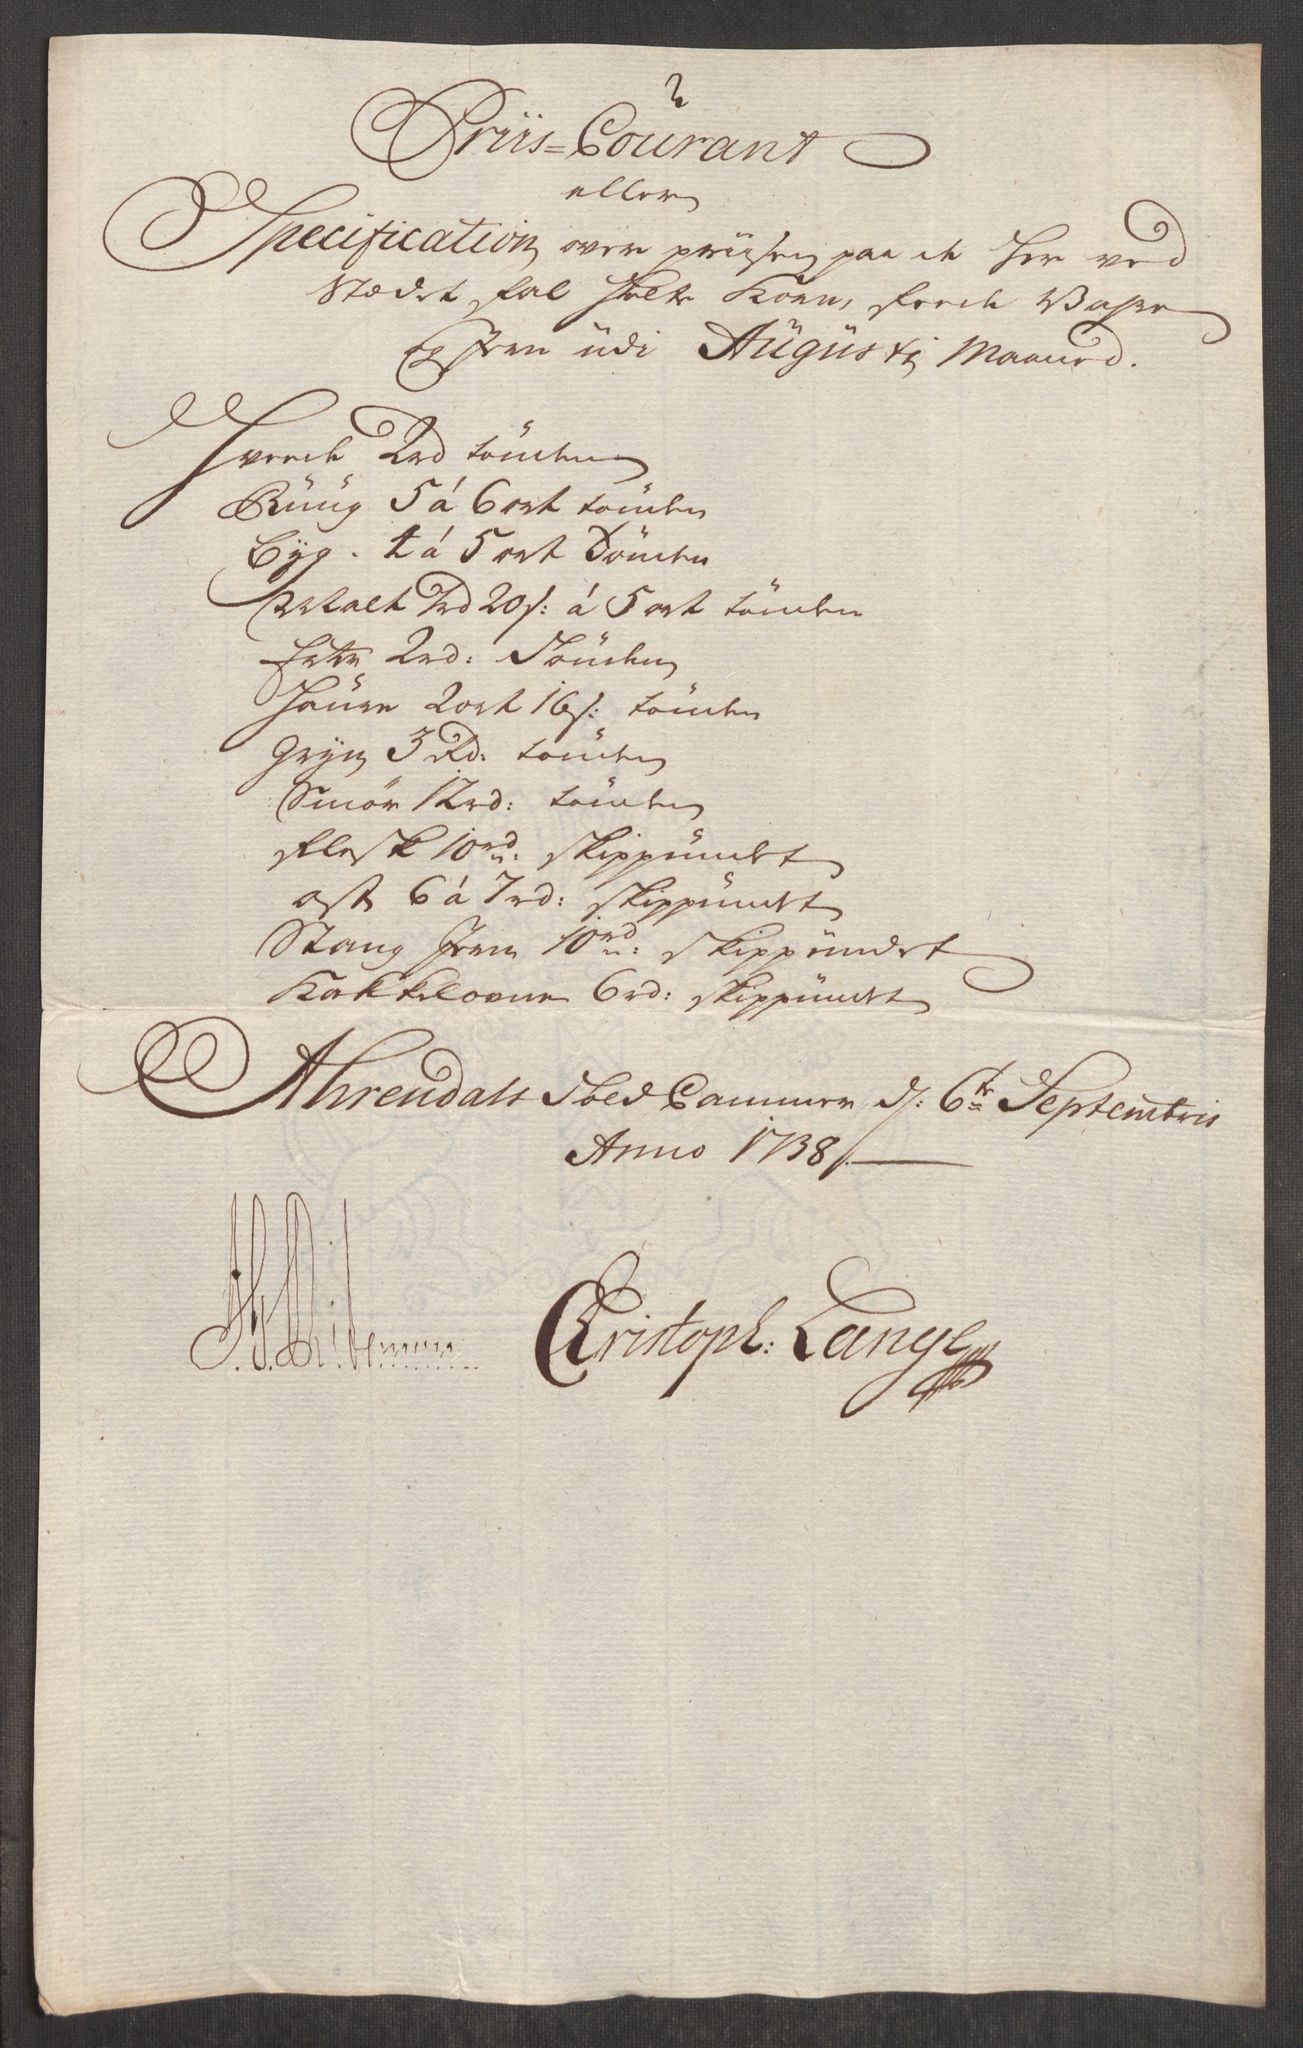 Priis=Courant
eller
Specification over priisen paa de her ved
Stædet fal holte Korn, fæede Vahre
og Jern udi Augusti Maaned.
Hvede 2 rd tönden
Rüüg 5 á 6 ort tönden
Byg. 4 á 5 ort Tönden
Malt 1 rd 20 s: á 5 ort tönden
Erter 2 rd: Tönden
Haure 2 ort 16 s: tönden
Gryn 3 Rd: tönden
Smör 12 rd: tönden
flesk 10 rd: skippundet
ost 6 á 7 rd: skippundet
Stang Jern 10 rd: skippundet
Kakkelovne 6 rd: skippundet
Ahrendals Told Cammer d: 6te Septembris
Anno 1738
Christoph: Lange